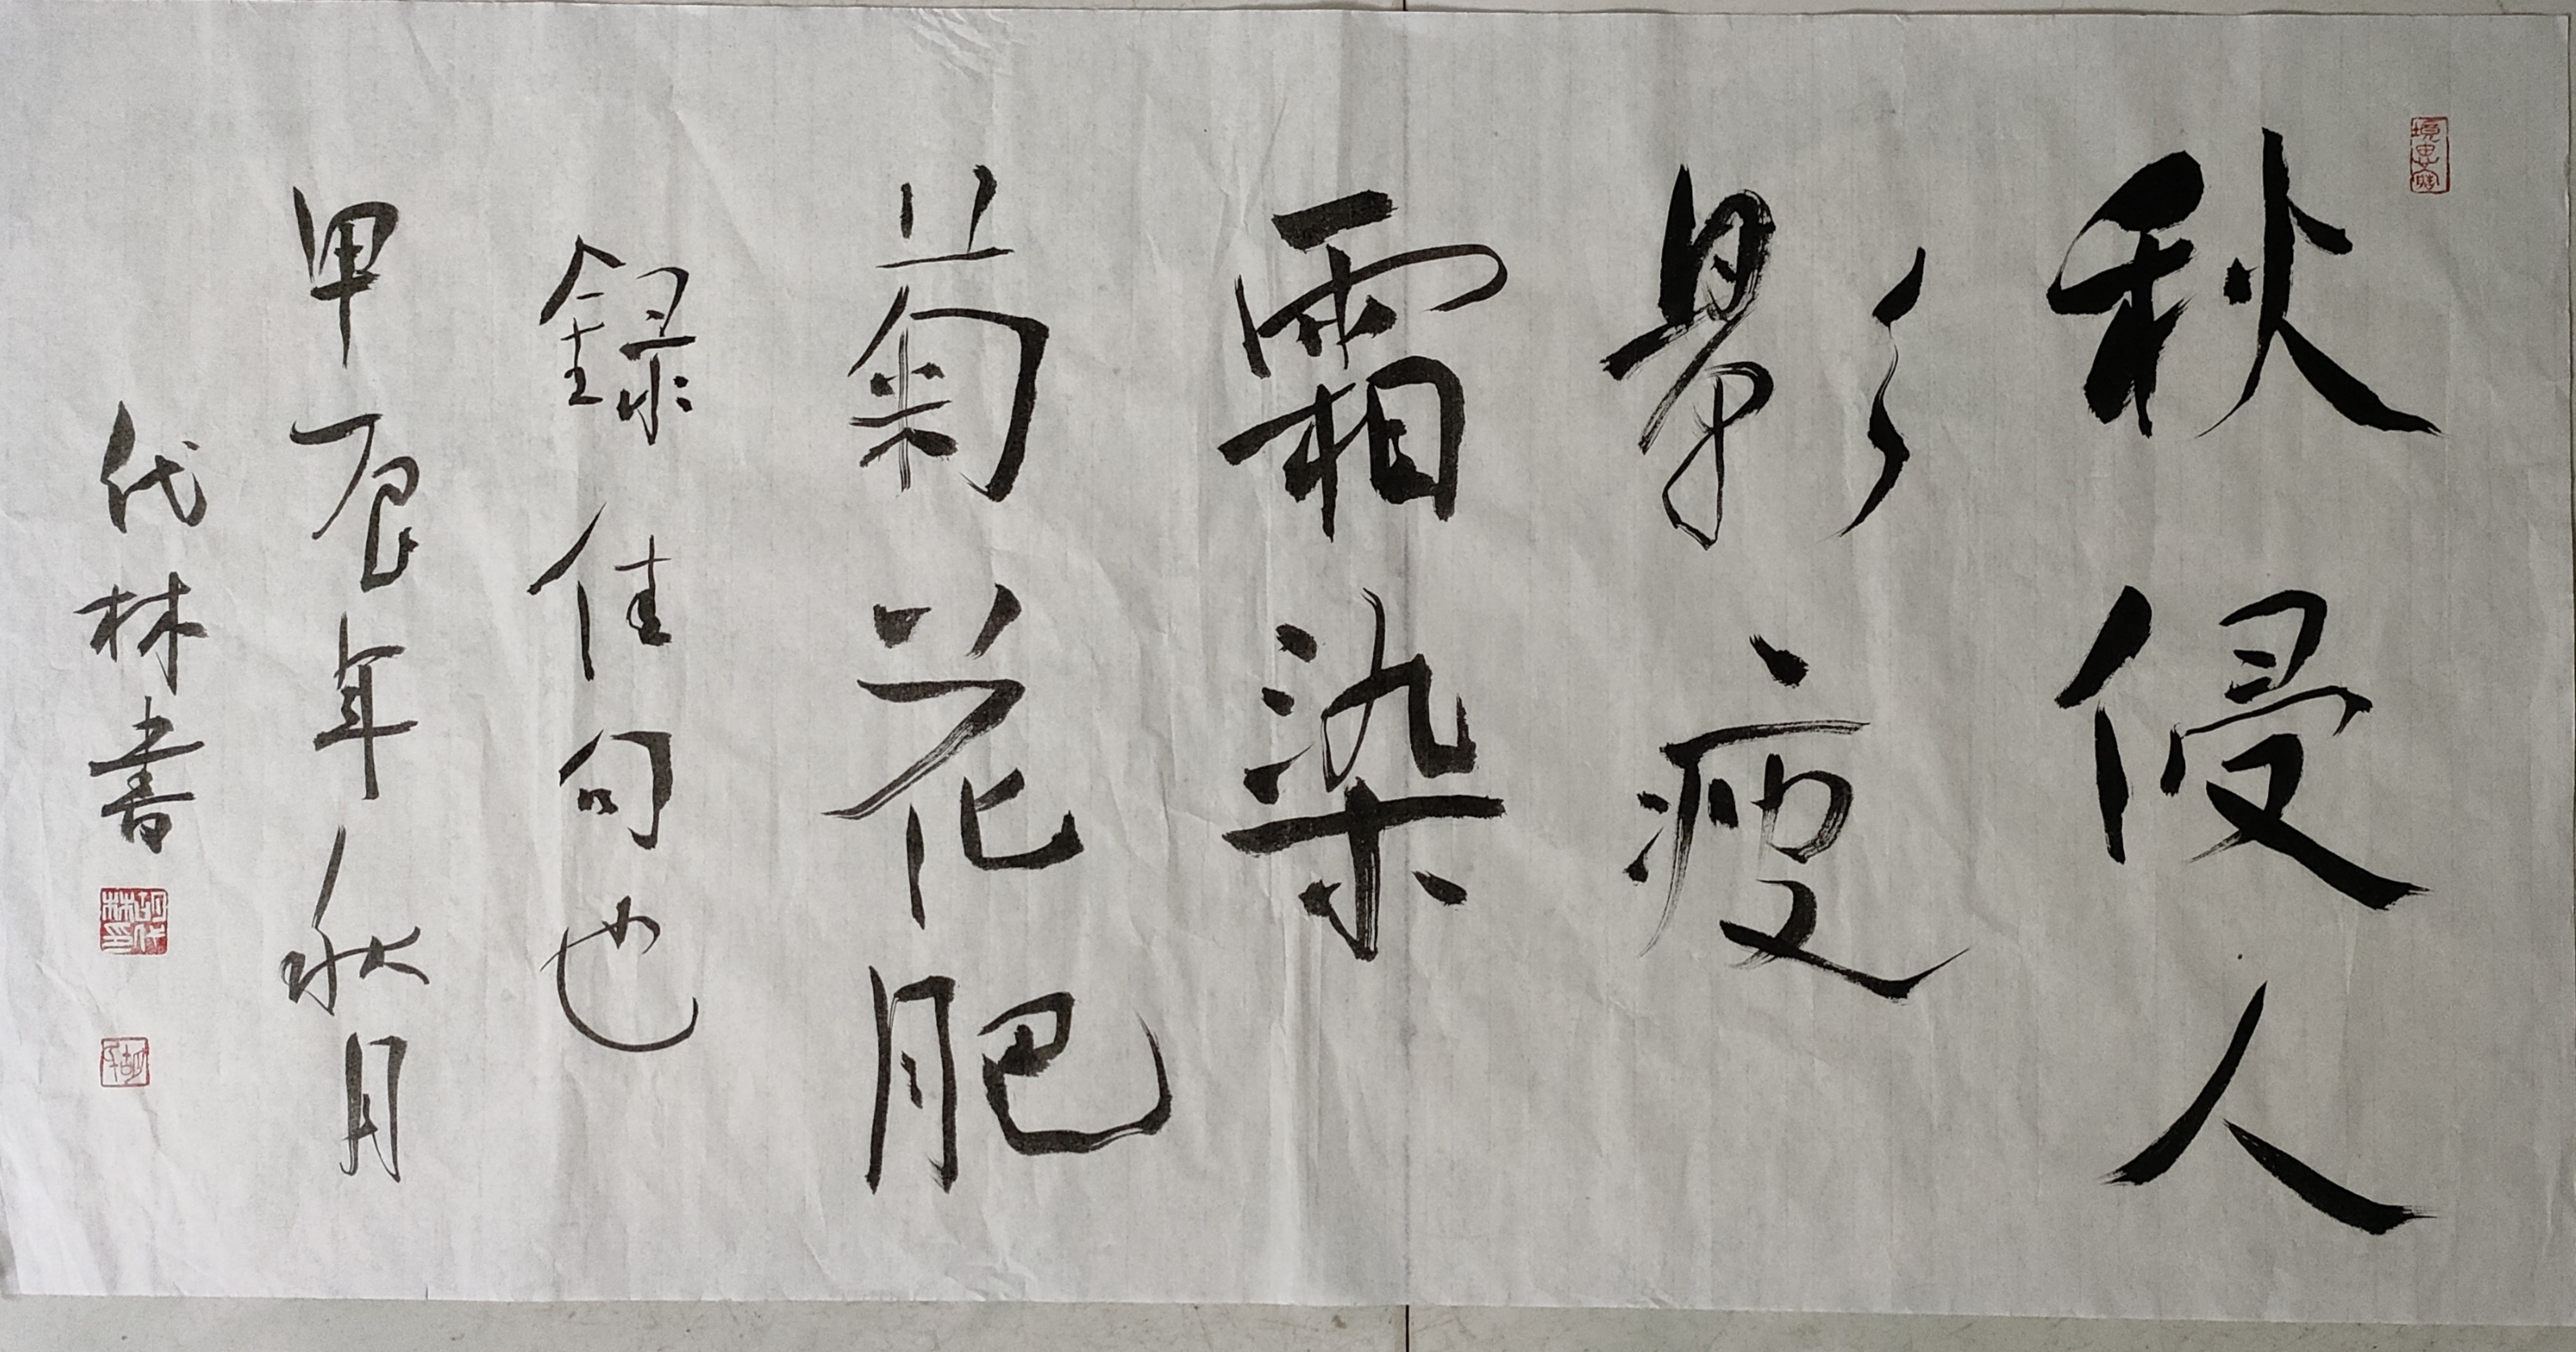 秋侵人
影瘦
霜染
菊花肥
録佳句也
甲辰年秋月
代林書
胡代林印